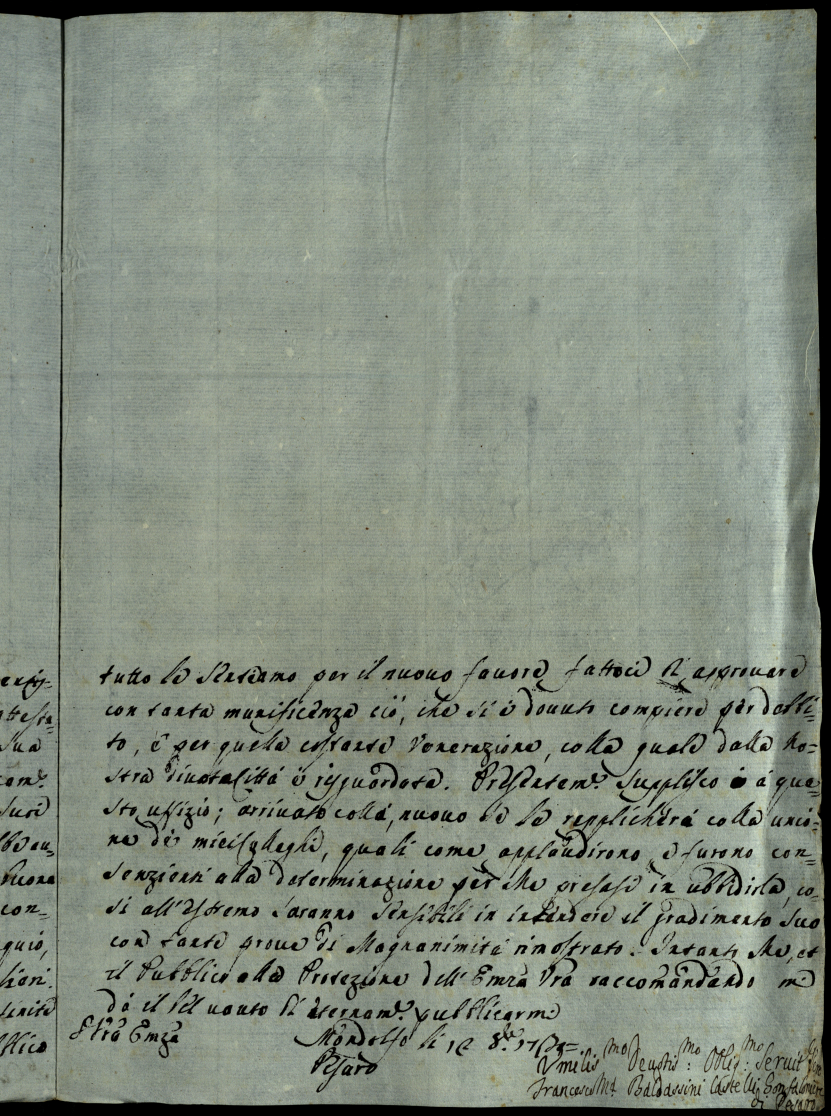 tutto le sentiamo per il nuovo favore fattoci di approvare
con tanta munificenza ciò, che si è dovuto compiere per debi=
to, e per quella costante Venerazione, colla quale dalla No=
stra divota Città è risguardata. Presentem.e supplisco a que=
sto uffizio; arrivato colà, nuovo se le repplicherà colla unio=
ne de miei Colleghi, quali come applaudirono, e furono con=
senzienti alla determinazione per Me presasi in ubbidirla, co=
sì all'estremo saranno sensibili in intendere il gradimento suo
con tante prove di Magnanimità rimostrato. Intanto Me, et
il Pubblico alla Protezione dell'Emza Vra raccomandando mi
dò il bel vanto di eternam.e pubblicarmi
Vra Emza
Mondolfo li 12 8bre
Pesaro
Umilis.mo Devotis.mo Oblig.mo Servit
Francesco Ma Baldassini Castelli Gonfaloniere
di Pesaro
ntà
Sua
com.e
con=
quio,
blico